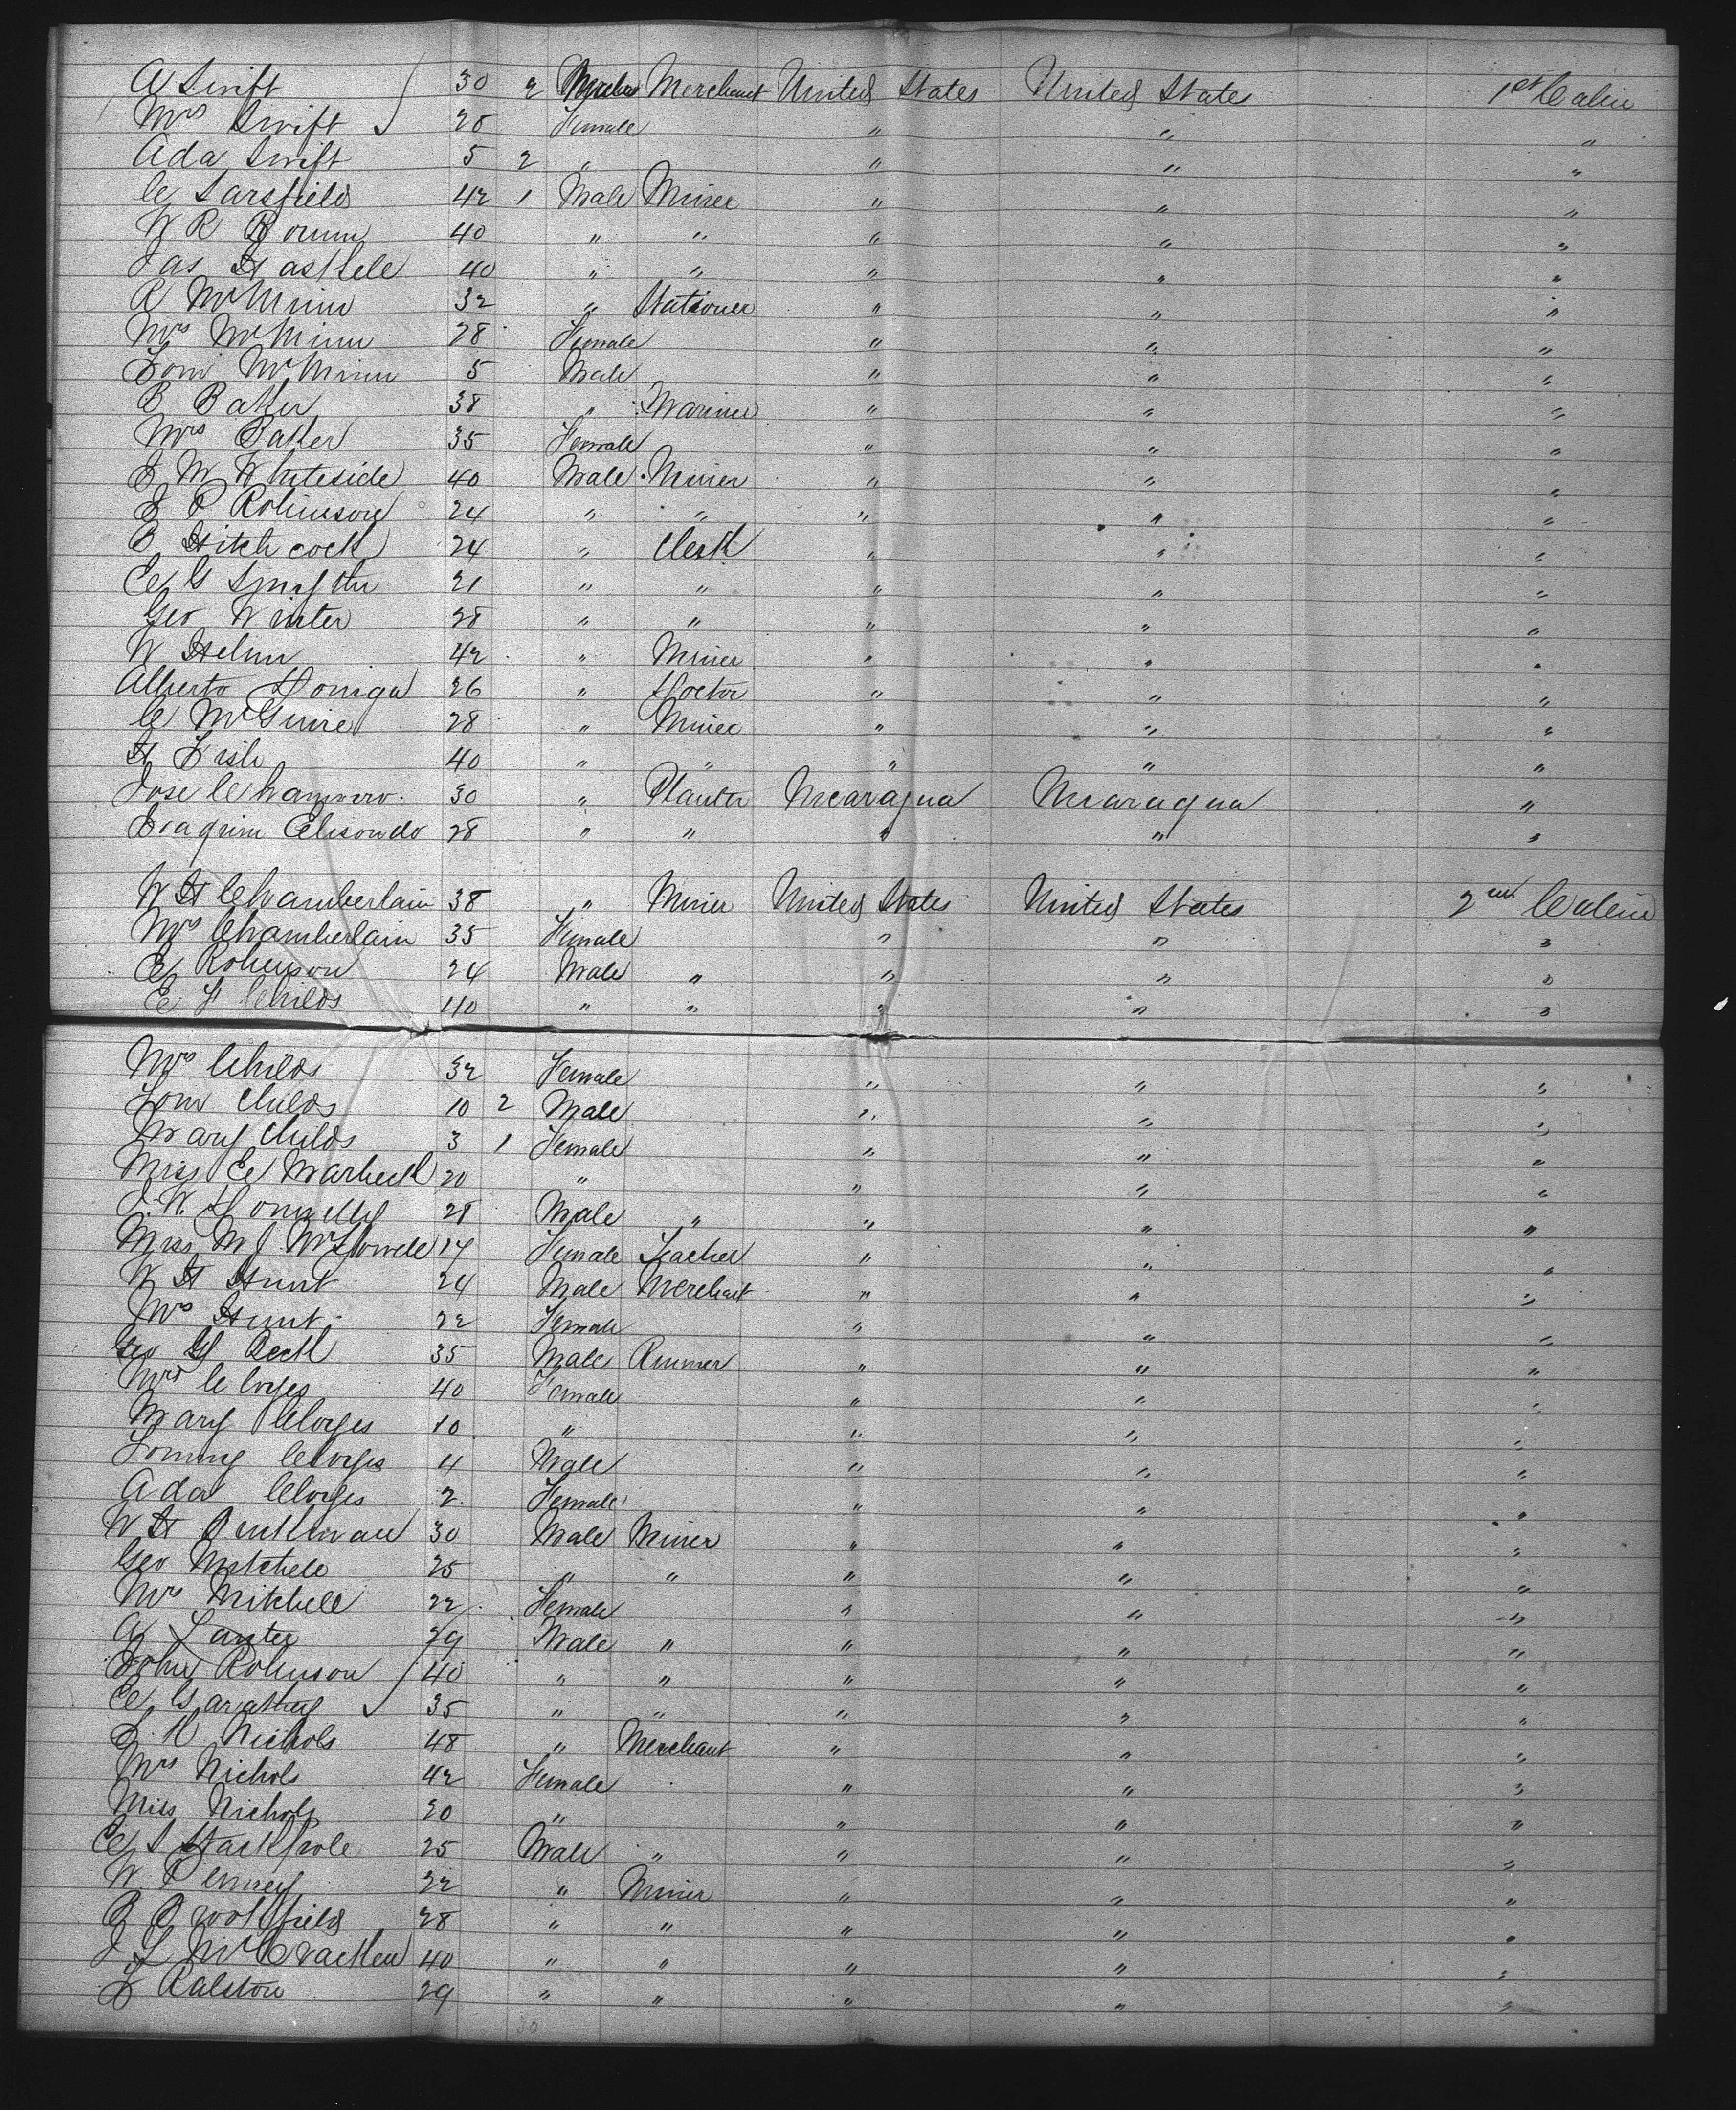 A Swift 30 2 Merchant United States United States 1st Cabin
Mrs Swift 28 Female " " "
Ada Swift 5 2 " " " "
C Sarsfield 42 1 Male Miner " " "
W R Bourn 40 " " " " "
Jas Haskell 40 " " " " "
R McMinn 32 " Stationer " " "
Mrs McMinn 28 Female " " "
Tom McMinn 5 Male " " "
B Baker 38 " Mariner " " "
Mrs Baker 35 Female " " "
J M Whiteside 40 Male Miner " " "
J P Robinson 24 " " " " "
B Hitchcock 24 " Clerk " " "
E G Smythe 21 " " " " "
Geo Winter 28 " " " " "
W Helm 42 " Miner " " "
Alberto 26 " Doctor " " "
C McGuire 28 " Miner " " "
H Fish 40 " " " " "
Jose Chamorro 30 " Planter Nicaragua Nicaragua "
Joaquim Elisondo 28 " " " " "
W H Chamberlain 38 " Miner United States United States 2nd Cabin
Mrs Chamberlain 35 Female " " "
E Robinson 24 Male " " " "
E F Childs 40 " " " " "
Mrs Childs 32 Female " " "
Tom Childs 10 2 Male " " "
Mary Childs 3 1 Female " " "
Miss E Warbeck 20 " " " "
J. W. Donnelly 28 Male " " " "
Miss M J McDowell 17 Female Teacher " " "
W H Hunt 24 Male Merchant " " "
Mrs Hunt 22 Female " " "
Geo H Beck 35 Male " " "
Mrs Cloyes 40 Female " " "
Mary Cloyes 10 " " " "
Tommy Cloyes 4 Male " " "
Ada Cloyes 2 Female " " "
W H 30 Male Miner " " "
Geo Mitchell 25 " " " " "
Mrs Mitchell 22 Female " " "
A 29 Male " " " "
John Robinson 40 " " " " "
E 35 " " " " "
J. H Nichols 48 " Merchant " " "
Mrs Nichols 42 Female " " "
Miss Nichols 20 " " " "
E S Stackpole 25 Male " " " "
W. Penney 22 " Miner " " "
B 28 " " " " "
J L McCracken 40 " " " " "
J Ralston 29 " " " " "